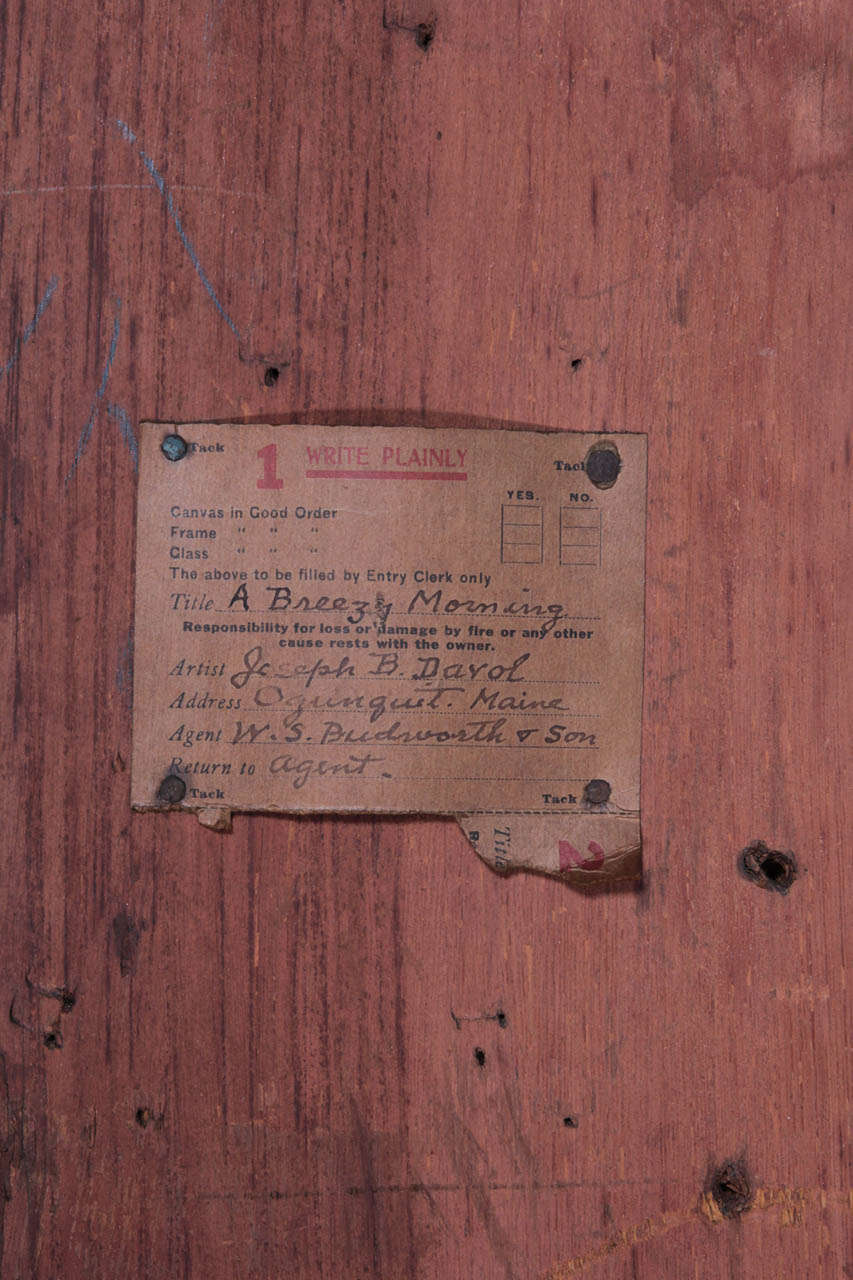 Tack 1 WRITE PLAINLY Tack
YES. NO.
Canvas in Good Order
Frame " " "
Glass " " "
The above to be filled by Entry Clerk only
Title A Breezy Morning
Responsibility for loss or damage by fire or any other
cause rests with the owner.
Artist Joseph B. Davol
Address Ogunquit. Maine
Agent W. S. Budworth & Son
Return to agent.
Tack Tack
Title
2